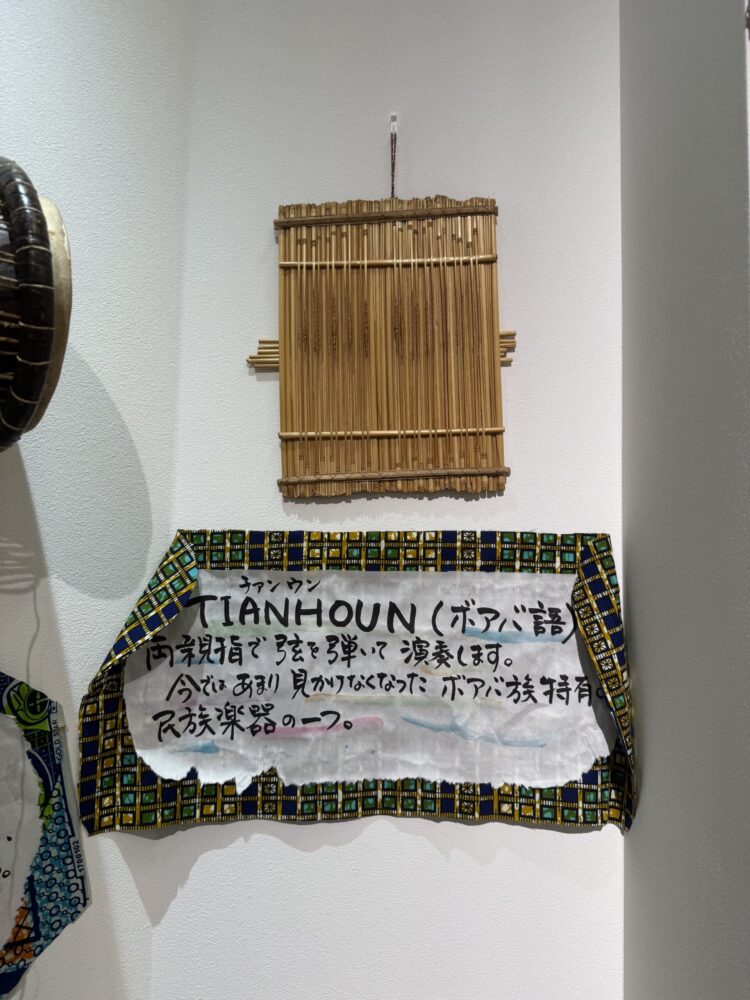 チァン ウン
TIANHOUN (ボアバ語)
両親指で弦を弾いて演奏します。
今ではあまり見かけなくなったボアバ族特有
民族楽器の一つ。
GOLD
1700102